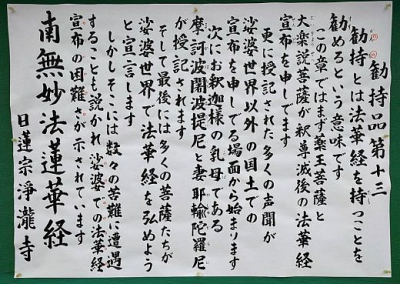 勧持品第十三
勧持とは法華経を持つことを
勧めるという意味です
この章ではまず薬王菩薩と
大楽説菩薩が釈尊滅後の法華経
宣布を申しでます
更に授記された多くの声聞が
娑婆世界以外の国土での
宣布を申しでる場面から始まります
次にお釈迦様の乳母である
摩訶闍波提尼と妻耶輸陀羅尼
が授記されます
そして最後には多くの菩薩たちが
娑婆世界で法華経を弘めよう
と宣言します
しかしそこには数々の苦難に遭遇
することも説かれ娑婆での法華経
宣布の困難さが示されています
南無妙法蓮華経
日蓮宗浄瀧寺